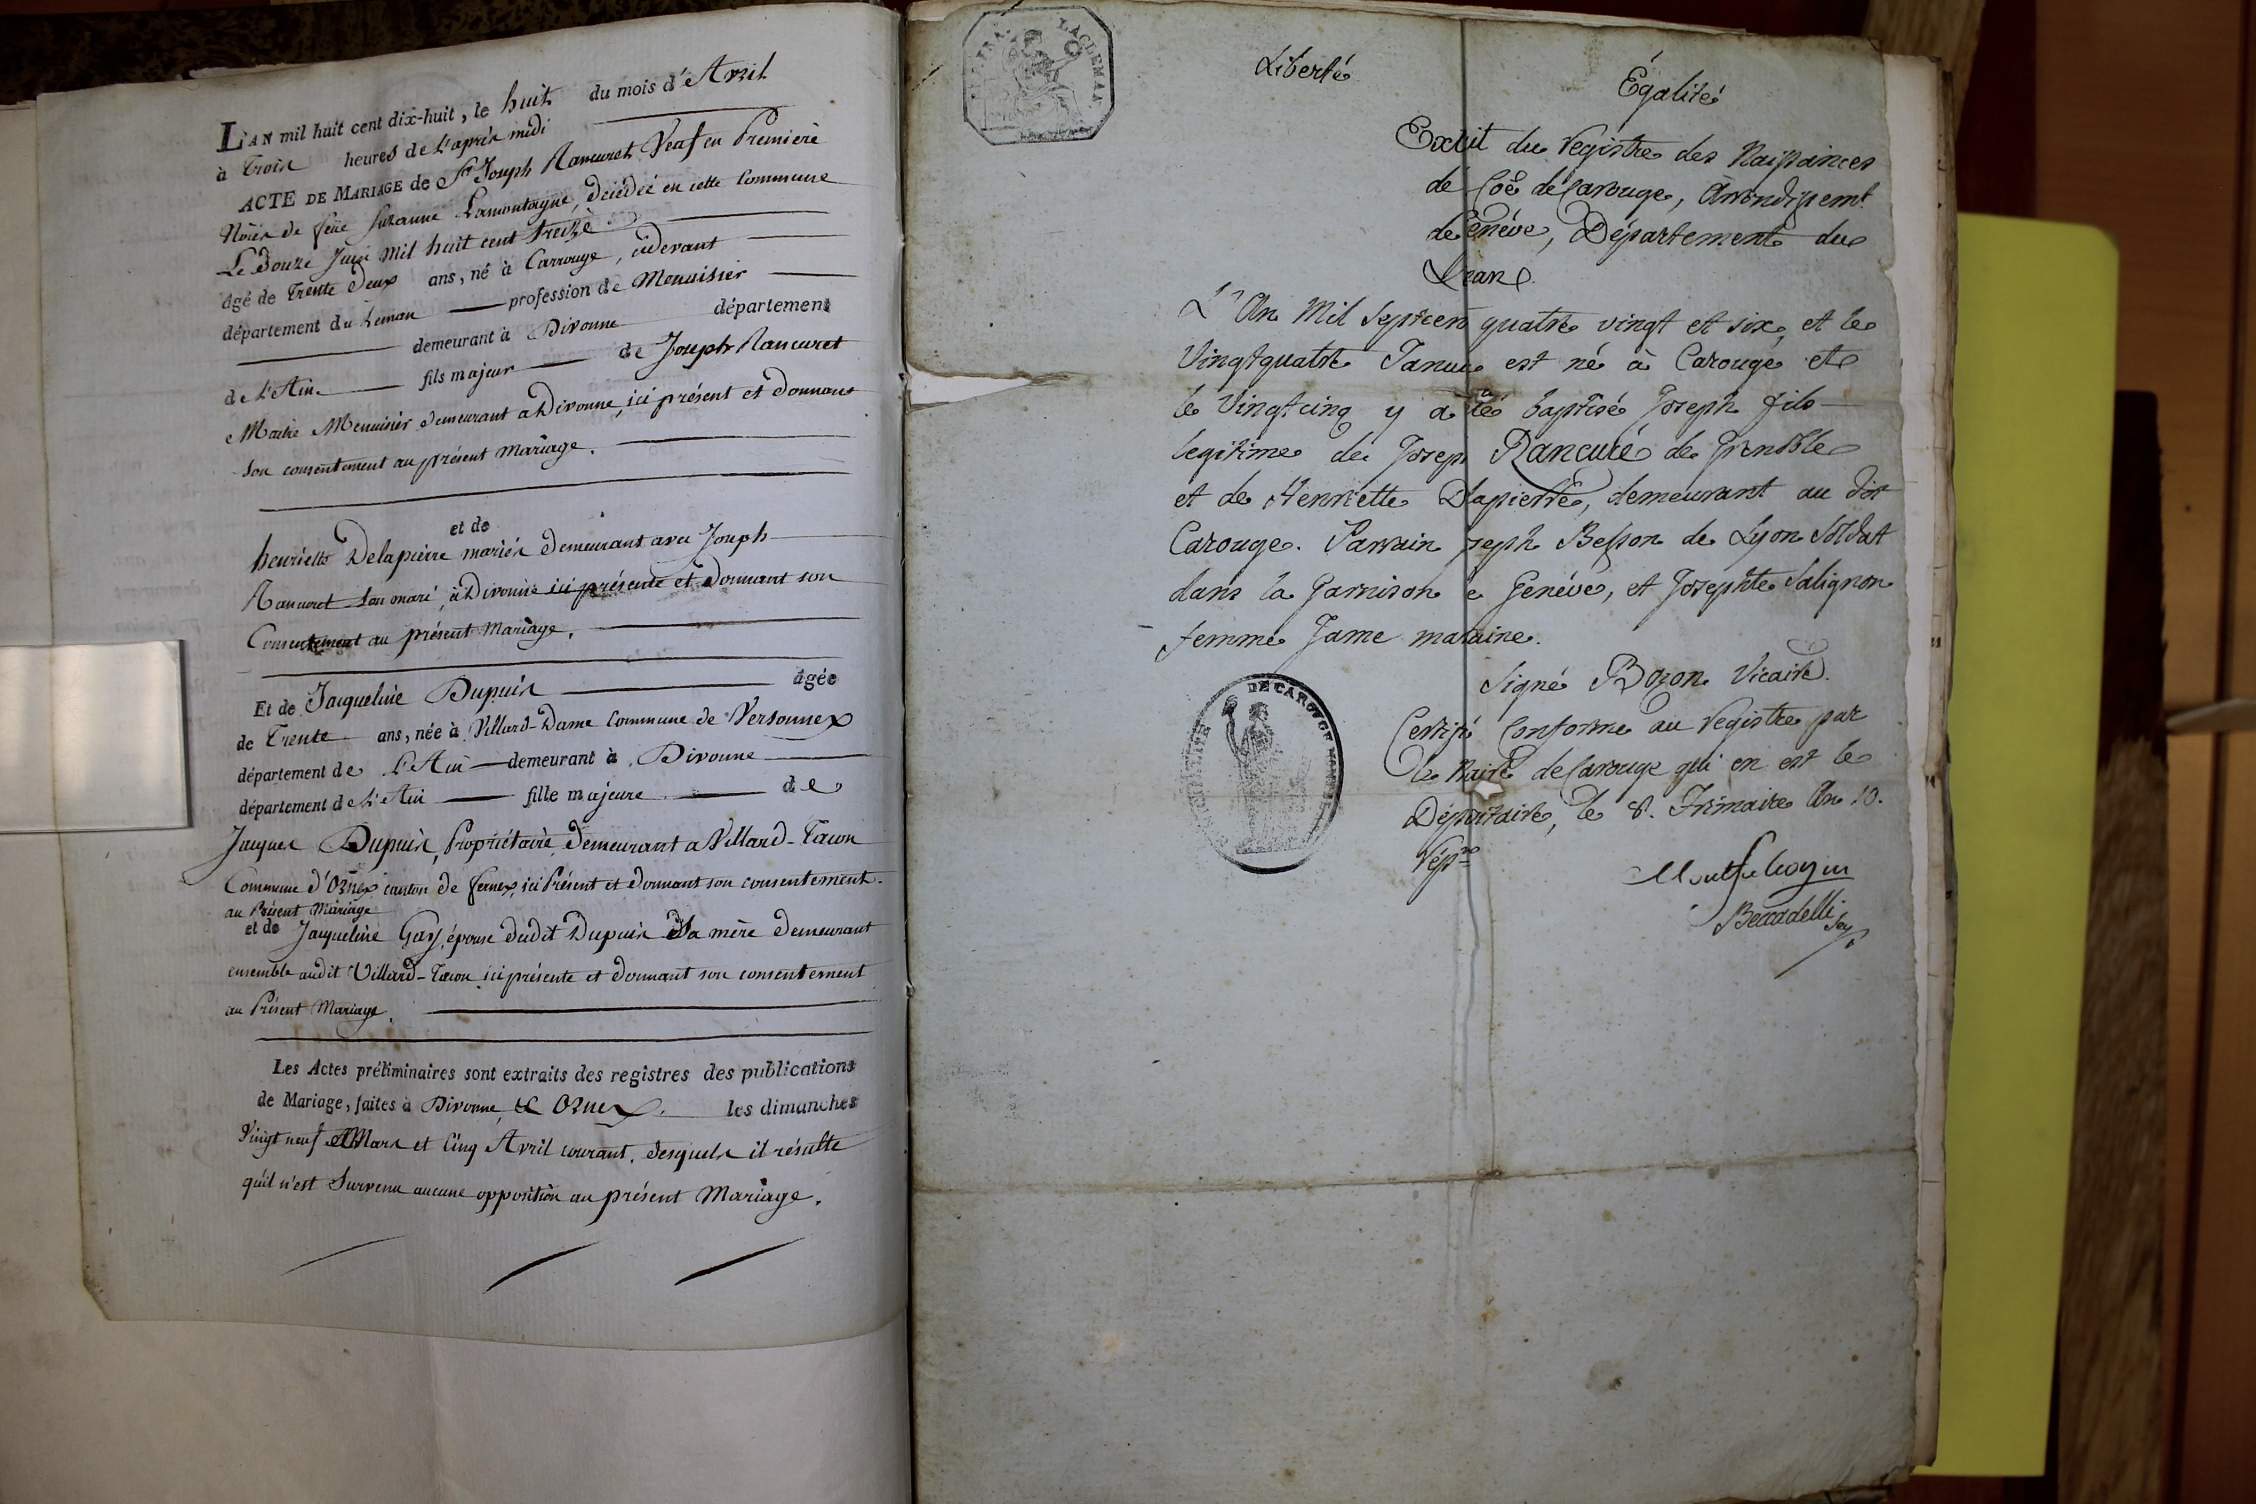 L'AN mil huit cent dix-huit, le huit du mois d'Avril
à Trois heures de l'après midi
ACTE DE MARIAGE de Sr Joseph Rancuret Veuf en Premiere
Noces de feue Suzanne Lamontagne, décédée en cette Commune
Le Douze Juin Mil huit cent treize.
âgé de Trente Deux ans, né à Carrouge, cidevant
département du Leman profession de Menuisier
demeurant à Divonne département
de L'Ain fils majeur de Joseph Rancuret
Maitre Menuisier demeurant a Divonne, ici présent et donnant
son consentement au présent mariage.
et de
henriette Delapierre mariés demeurant avec Joseph
Rancuret son mari, à Divonne ici présente et donnant son
Consentement au présent Mariage.
Et de Jacqueline Dupuis âgée
de Trente ans, née à Villard-Dame Commune de Versonnex
département de L'Ain demeurant à Divonne
département de L'Ain fille majeure de
Jacques Dupuis, Propriétaire demeurant a Villard-Tacon
Commune d'Ornex canton de fernex, ici Présent et donnant son consentement
au Présent Mariage
et de Jacqueline Gay, épouse dudit Dupuis Sa mère demeurant
ensemble audit Villard-Tacon ici présente et donnant son consentement
au Présent Mariage.
Les Actes préliminaires sont extraits des registres des publications
de Mariage, faites à Divonne, & Ornex. les dimanches
Vingt neuf Mars et Cinq Avril courant. desquels il résulte
qu'il n'est Survenu aucune opposition au présent Mariage.
Liberté Égalité
Extrit du Registre des Naissances
de Coe de Carouge, Arrondissemt
de Genéve, Département du
Léman
L'An Mil Septcent quatre vingt et six, et le
Vingtquatre Janvie est né à Carouge et
le Vingtcinq y a été baptisé Joseph fils
legitime de Joseph Rancuré de Grenoble
et de Henriette Dlapierre, demeurant au dit
Carouge. Parrain Joseph Besson de Lyon Soldat
dans la Garnison e Genéve, et Josephte Salignon
femme Jame maraine.
Signé Bozon Vicaire.
Certifié Conforme au Registre par
le Maire de Carouge qui en est le
Dépositaire, le 8. Frimaire An 10.
Répne
Beccadelli Sey
DE CAROUGE